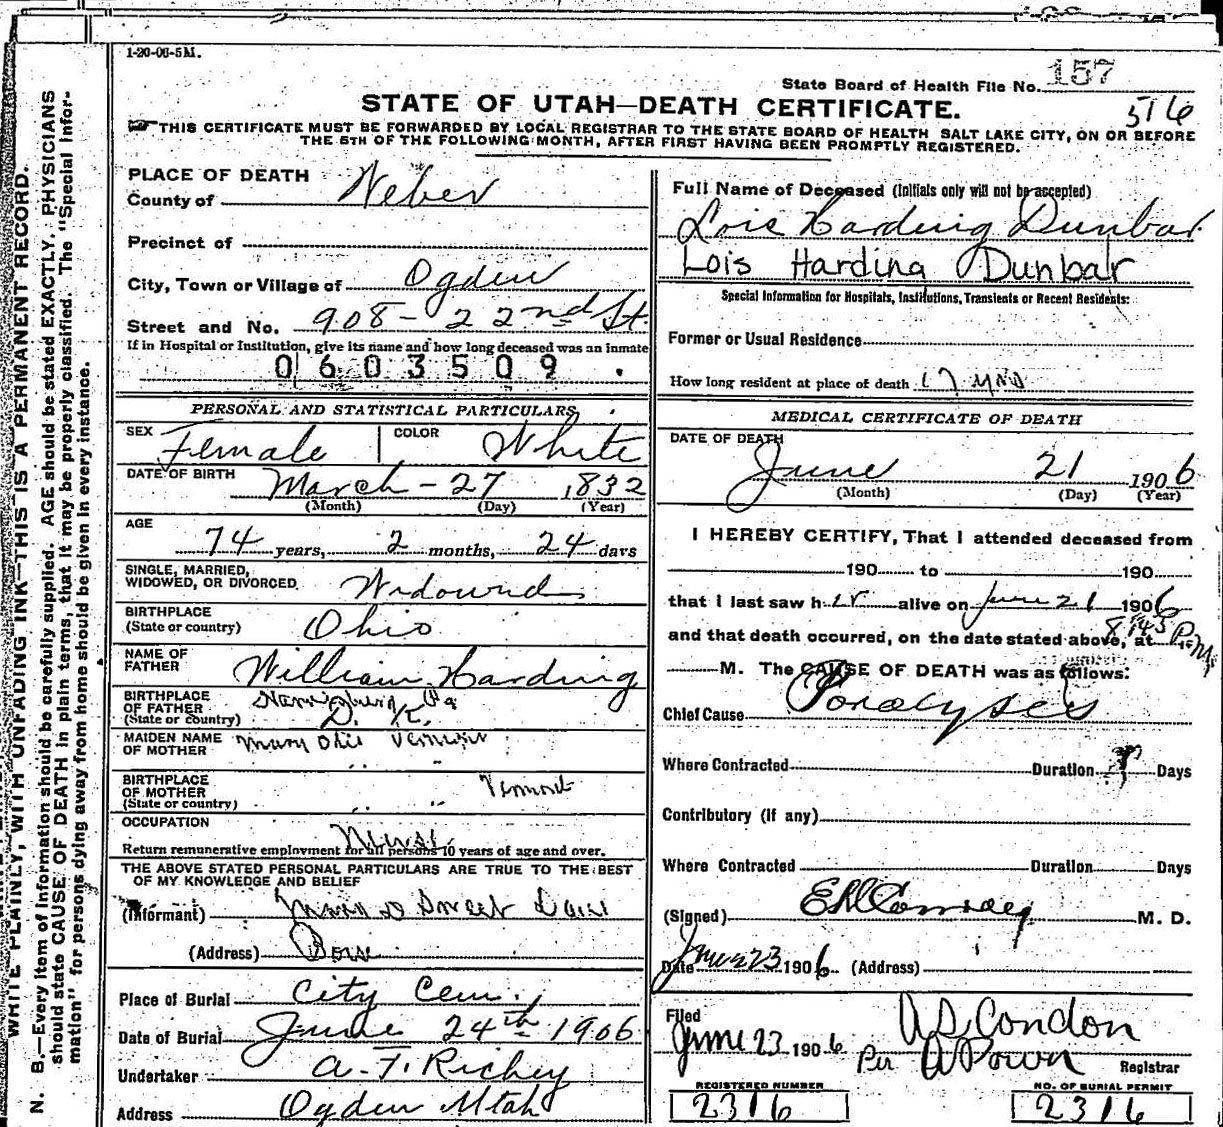 1-20-06-5M.
State Board of Health File No. 157
516
STATE OF UTAH—DEATH CERTIFICATE.
THIS CERTIFICATE MUST BE FORWARDED BY LOCAL REGISTRAR TO THE STATE BOARD OF HEALTH SALT LAKE CITY, ON OR BEFORE
THE 5TH OF THE FOLLOWING MONTH, AFTER FIRST HAVING BEEN PROMPTLY REGISTERED.
WRITE PLAINLY, WITH UNFADING INK—THIS IS A PERMANENT RECORD.
N. B.—Every item of information should be carefully supplied. AGE should be stated EXACTLY. PHYSICIANS
should state CAUSE OF DEATH in plain terms, that it may be properly classified. The "Special Infor-
mation" for persons dying away from home should be given in every instance.
PLACE OF DEATH
County of Weber
Precinct of
City, Town or Village of Ogden
Street and No. 908 - 22nd St.
If in Hospital or Institution, give its name and how long deceased was an inmate
0603509
PERSONAL AND STATISTICAL PARTICULARS
SEX Female COLOR White
DATE OF BIRTH March - 27 1832
(Month) (Day) (Year)
AGE
74 years, 2 months, 24 days
SINGLE, MARRIED,
WIDOWED, OR DIVORCED Widowed
BIRTHPLACE
(State or country) Ohio
NAME OF
FATHER William Harding
BIRTHPLACE
OF FATHER Pa
(State or country) D. K.
MAIDEN NAME
OF MOTHER Mary
BIRTHPLACE
OF MOTHER Vermont
(State or country)
OCCUPATION
Nurse
Return remunerative employment for all persons 10 years of age and over.
THE ABOVE STATED PERSONAL PARTICULARS ARE TRUE TO THE BEST
OF MY KNOWLEDGE AND BELIEF
(Informant)
(Address)
Place of Burial City Cem.
Date of Burial June 24th 1906
Undertaker A. F. Richey
Address Ogden Utah
Full Name of Deceased (Initials only will not be accepted)
Lois Harding Dunbar
Lois Harding Dunbar
Special Information for Hospitals, Institutions, Transients or Recent Residents:
Former or Usual Residence
How long resident at place of death 17
MEDICAL CERTIFICATE OF DEATH
DATE OF DEATH
June 21 1906
(Month) (Day) (Year)
I HEREBY CERTIFY, That I attended deceased from
190 to 190
that I last saw her alive on June 21 1906
and that death occurred, on the date stated above, at 8:45 P.M.
M. The CAUSE OF DEATH was as follows:
Chief Cause Paralysis
Where Contracted Duration Days
Contributory (if any)
Where Contracted Duration Days
(Signed) M. D.
Date June 23 1906 (Address)
Filed
June 23 1906 A S Condon
Per Registrar
REGISTERED NUMBER
2316
NO. OF BURIAL PERMIT
2316